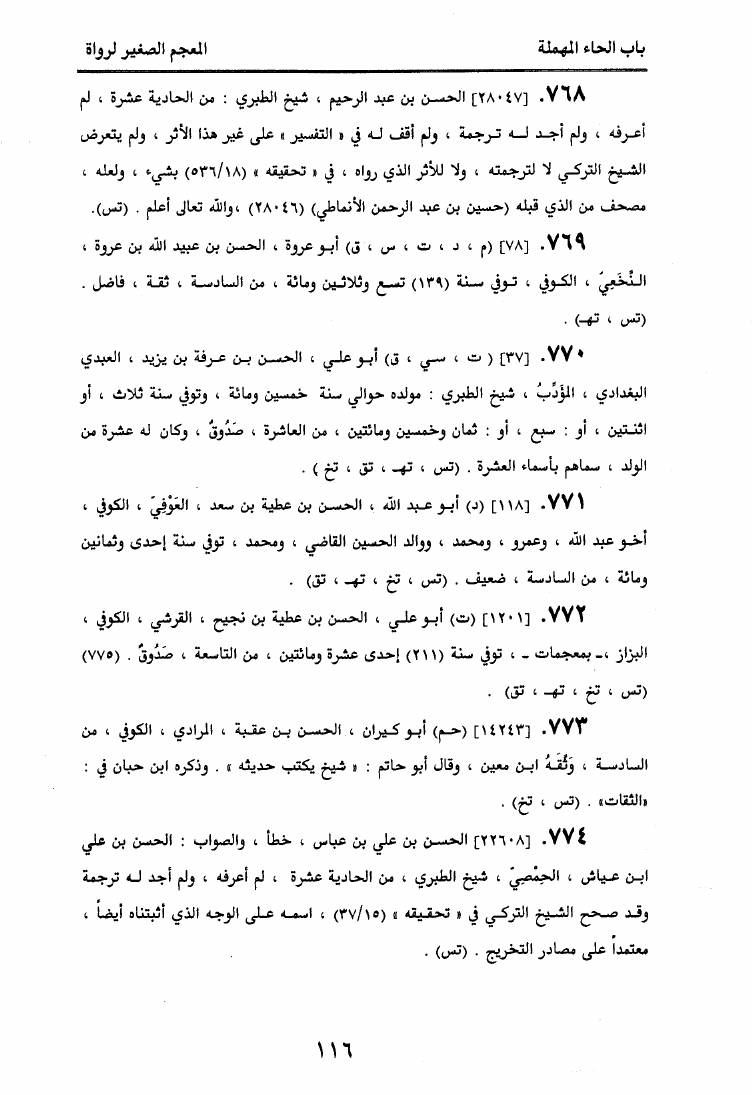 باب الحاء المهملة المعجم الصغير لرواة
٧٦٨. [٢٨٠٤٧] الحسن بن عبد الرحيم ، شيخ الطبري : من الحادية عشرة ، لم
أعرفه ، ولم أجد له ترجمة ، ولم أقف له في « التفسير » على غير هذا الأثر ، ولم يتعرض
الشيخ التركي لا لترجمته ، ولا للأثر الذي رواه ، في « تحقيقه » (٥٣٦/١٨) بشيء ، ولعله ،
مصحف من الذي قبله (حسين بن عبد الرحمن الأنماطي) (٢٨٠٤٦) ،والله تعالى أعلم . (تس).
٧٦٩. [٧٨] (م ، د ، ت ، س ، ق) أبو عروة ، الحسن بن عبيد الله بن عروة ،
النَّخَعِيّ ، الكوفي ، توفي سنة (١٣٩) تسع وثلاثين ومائة ، من السادسة ، ثقة ، فاضل .
(تس ، تهـ) .
٧٧٠. [٣٧] ( ت ، سي ، ق) أبو علي ، الحسن بن عرفة بن يزيد ، العبدي
البغدادي ، المؤَدِّبُ ، شيخ الطبري : مولده حوالي سنة خمسين ومائة ، وتوفي سنة ثلاث ، أو
اثنتين ، أو : سبع ، أو : ثمان وخمسين ومائتين ، من العاشرة ، صَدُوقٌ ، وكان له عشرة من
الولد ، سماهم بأسماء العشرة . (تس ، تهـ ، تق ، تخ ) .
٧٧١. [١١٨] (د) أبو عبد الله ، الحسن بن عطية بن سعد ، العَوْفِيّ ، الكوفي ،
أخو عبد الله ، وعمرو ، ومحمد ، ووالد الحسين القاضي ، ومحمد ، توفي سنة إحدى وثمانين
ومائة ، من السادسة ، ضعيف . (تس ، تخ ، تهـ ، تق) .
٧٧٢. [١٢٠١] (ت) أبو علي ، الحسن بن عطية بن نجيح ، القرشي ، الكوفي ،
البزاز ،ـ بمعجمات ـ ، توفي سنة (٢١١) إحدى عشرة ومائتين ، من التاسعة ، صَدُوقٌ . (٧٧٥)
(تس ، تخ ، تهـ ، تق) .
٧٧٣. [١٤٢٤٣] (حم) أبو كيران ، الحسن بن عقبة ، المرادي ، الكوفي ، من
السادسة ، وَثَّقَهُ ابن معين ، وقال أبو حاتم : « شيخ يكتب حديثه » . وذكره ابن حبان في :
«الثقات» . (تس ، تخ) .
٧٧٤. [٢٢٦٠٨] الحسن بن علي بن عباس ، خطأ ، والصواب : الحسن بن علي
ابن عياش ، الحِمْصِيّ ، شيخ الطبري ، من الحادية عشرة ، لم أعرفه ، ولم أجد له ترجمة
وقد صحح الشيخ التركي في « تحقيقه » (٣٧/١٥) ، اسمه على الوجه الذي أثبتناه أيضاً ،
معتمداً على مصادر التخريج . (تس) .
١١٦